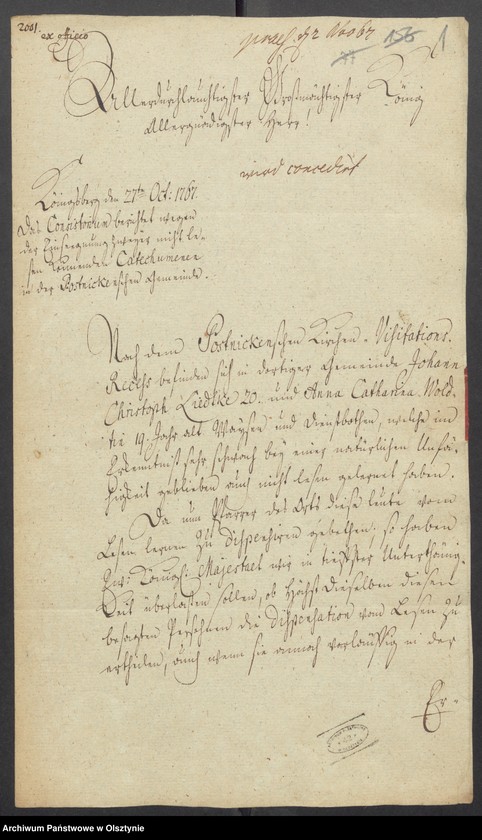 2001.
ex officio
praes. d 2 Nov 67
156
1
Allerdurchlauchtigster Großmächtigster König
Allergnädigster Herr!
wird concedirt
Königsberg den 27ten Oct: 1767.
Das Consistorium berichtet wegen
der Einseegnung zweyer nicht le-
sen könnenden Catechumenen
in der Postnickenschen Gemeinde.
Nach dem Postnickenschen Kirchen-Visitations-
Recess befinden sich in dortiger Gemeinde Johann
Christoph Liedtke 20. und Anna Catharina Wold-
tin 19. Jahr alt Waysen und Dienstbothen, welche im
Erkenntniß sehr schwach bey einer natürlichen Unfä-
higkeit geblieben auch nicht lesen gelernet haben.
Da nun Pfarrer des Orts diese Leute vom
Lesen lernen zu dispensiren gebethen: so haben
Ew: Königl: Majestaet wir in tiefster Unterthänig-
keit überlassen sollen, ob Höchst Dieselben diesen
besagten Persohnen die Dispensation vom Lesen zu
ertheilen, auch wenn sie annoch vorläuffig in der
Er-
Archiwum Państwowe w Olsztynie